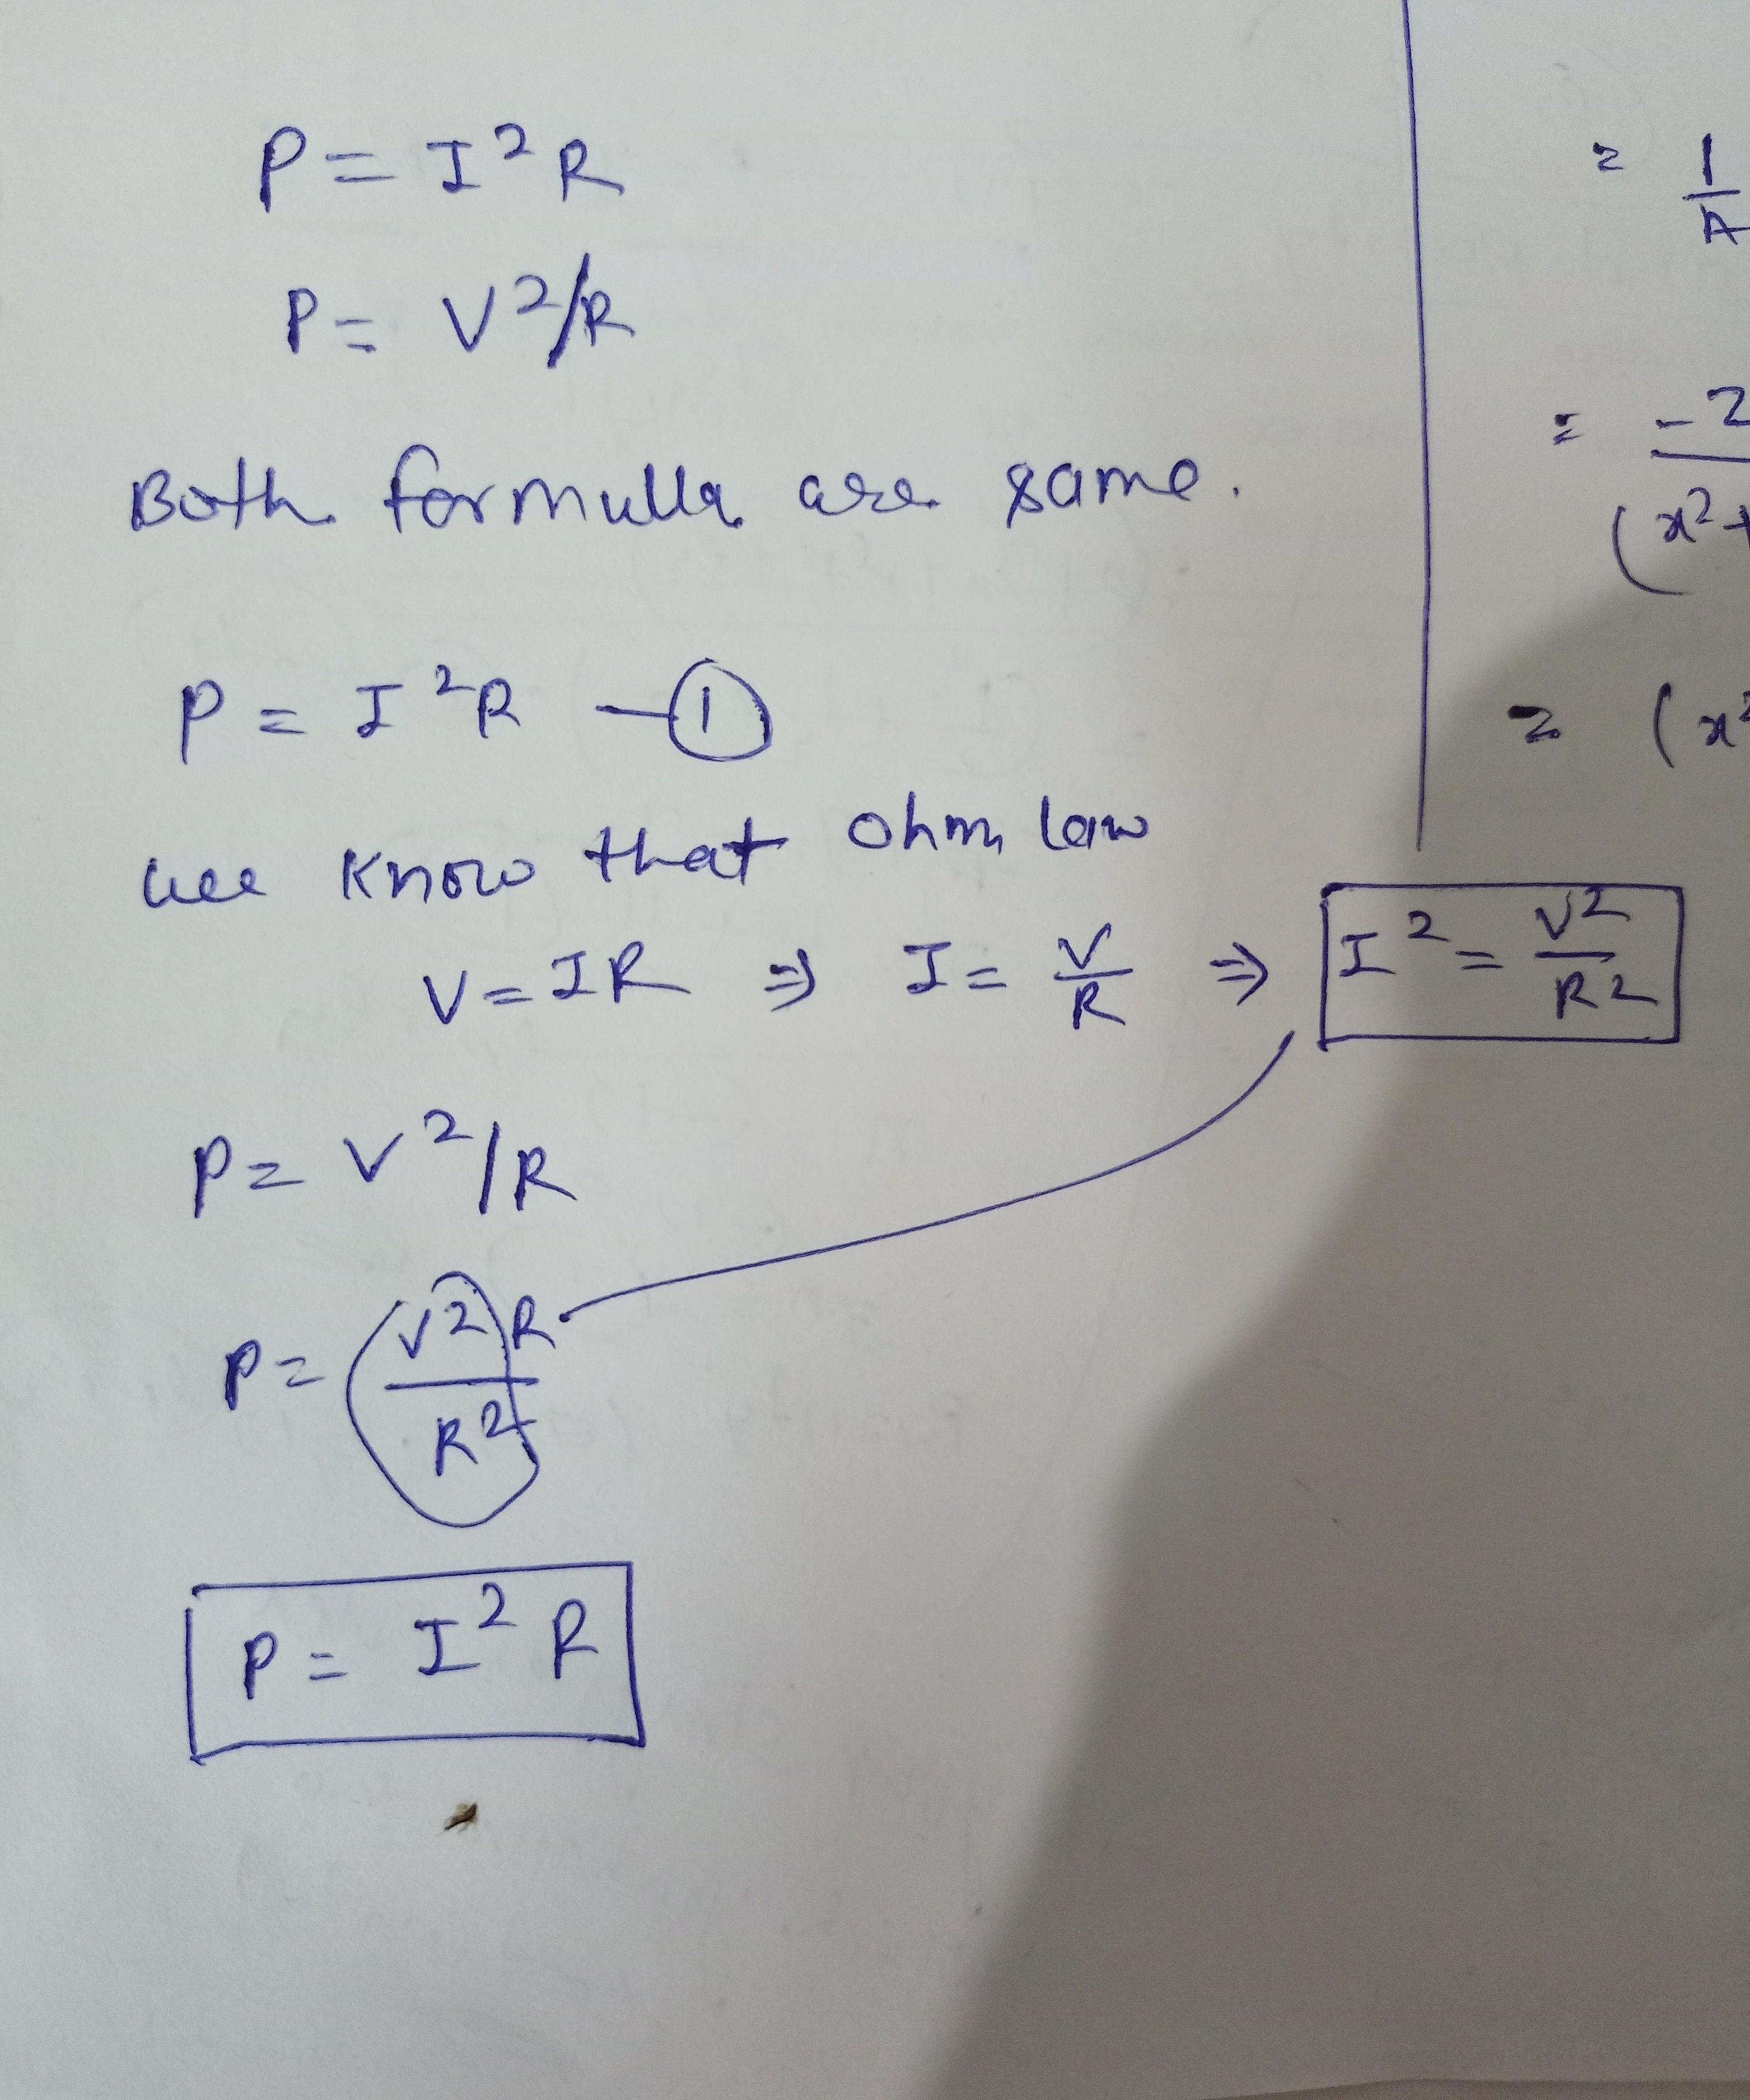 P = I²R
P = V²/R
Both formulla are same.
P = I²R —①
wee know that ohm law
V = IR ⇒ I = V/R ⇒ I² = V²/R²
P = V²/R
P = V²R/R²
P = I² R
= 1/
= -2/(x²+
= (x²